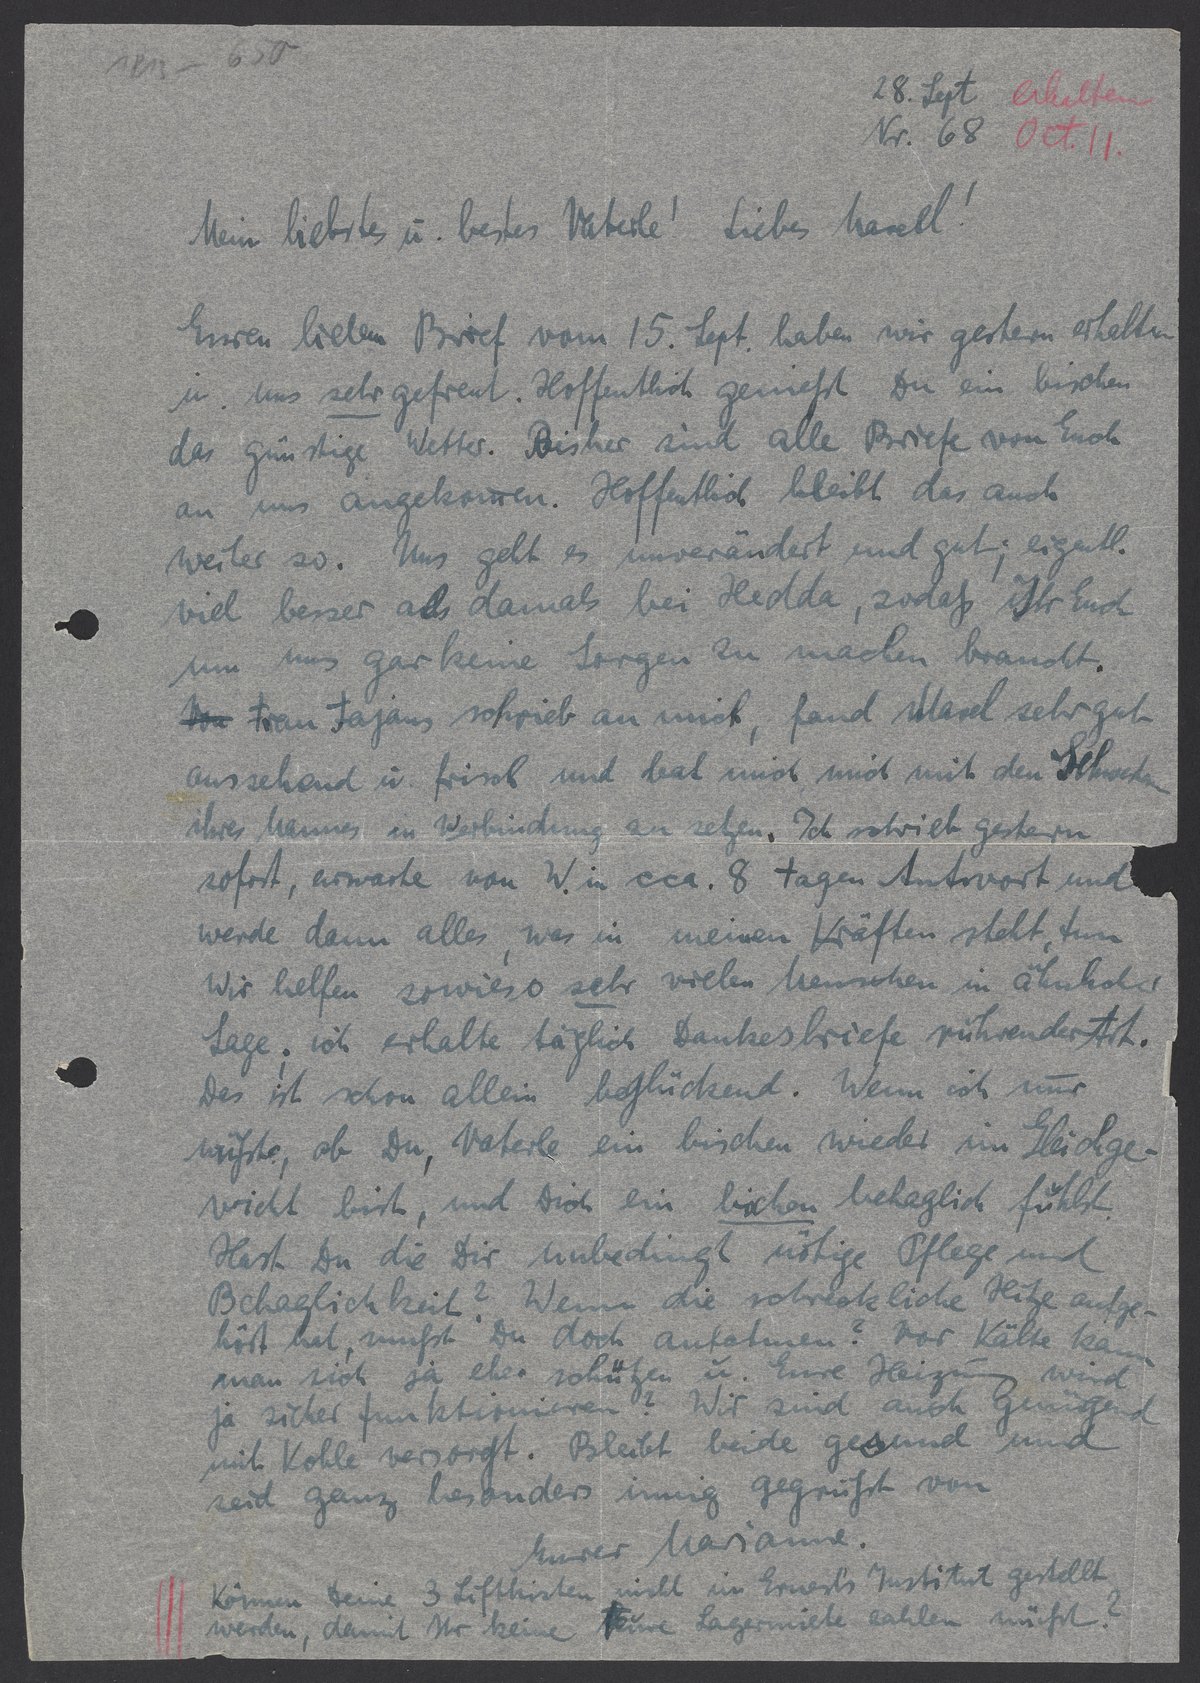 650
28. Sept erhalten
Nr. 68 Oct. 11.
Mein liebstes u. bestes Vaterle! Liebes Maxel!
Euren lieben Brief vom 15. Sept. haben wir gestern erhalten
u. uns sehr gefreut. Hoffentlich genießt Du ein bischen
das günstige Wetter. Bisher sind alle Briefe von Euch
an uns angekom̅en. Hoffentlich bleibt das auch
weiter so. Uns geht es unverändert und gut; eigentl.
viel besser als damals bei Hedda, sodaß Ihr Euch
um uns gar keine Sorgen zu machen braucht.
Frau Fajans schrieb an mich, fand Maxel sehr gut
aussehend u. frisch und bat mich mich mit den
ihres Mannes in Verbindung zu setzen. Ich schrieb gestern
sofort, erwarte von W. in cca. 8 Tagen Antwort und
werde dann alles, was in meinen Kräften steht, tun
Wir helfen sowieso sehr vielen Menschen in ähnlicher
Lage; ich erhalte täglich Dankesbriefe rührender Art.
Das ist schon allein beglückend. Wenn ich nur
wüßte, ob Du, Vaterle ein bischen wieder im Gleichge-
wicht bist, und Dich ein bischen behaglich fühlst.
Hast Du die Dir unbedingt nötige Pflege und
Behaglichkeit? Wenn die schreckliche Hitze aufge-
hört hat, mußt Du doch aufatmen? Vor Kälte kann
man sich ja eher schützen u. Eure Heizung wird
ja sicher funktionieren? Wir sind auch genügend
mit Kohle versorgt. Bleibt beide gesund und
seid ganz besonders innig gegrüßt von
Eurer Marianne.
Können Deine 3 Liftkisten nicht in Ernest's Institut gestellt
werden, damit Ihr keine teure Lagermiete zahlen müßt?